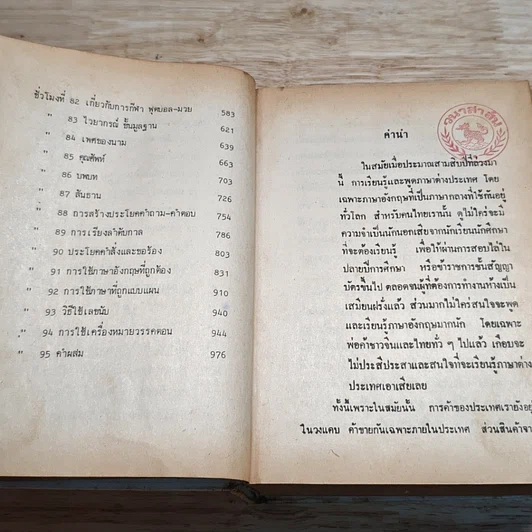 ชั่วโมงที่ 82 เกี่ยวกับการกีฬา ฟุตบอล-มวย 583
" 83 ไวยากรณ์ ขั้นมูลฐาน 621
" 84 เพศของนาม 639
" 85 คุณศัพท์ 663
" 86 บุพบท 703
" 87 สันธาน 726
" 88 การสร้างประโยคคำถาม-คำตอบ 754
" 89 การเรียงลำดับกาล 786
" 90 ประโยคคำสั่งและขอร้อง 803
" 91 การใช้ภาษาอังกฤษที่ถูกต้อง 831
" 92 การใช้ภาษาที่ถูกแบบแผน 910
" 93 วิธีใช้เลขนับ 940
" 94 การใช้เครื่องหมายวรรคตอน 944
" 95 คำผสม 976
วนาสาส์น
คำนำ
ในสมัยเมื่อประมาณสามสิบปีที่ล่วงมา
นี้ การเรียนรู้และพูดภาษาต่างประเทศ โดย
เฉพาะภาษาอังกฤษที่เป็นภาษากลางที่ใช้กันอยู่
ทั่วโลก สำหรับคนไทยเรานั้น ดูไม่ใคร่จะมี
ความจำเป็นนักนอกเสียจากนักเรียนนักศึกษา
ที่จะต้องเรียนรู้ เพื่อให้ผ่านการสอบไล่ใน
ปลายปีการศึกษา หรือข้าราชการชั้นสัญญา
บัตรขึ้นไป ตลอดจนผู้ที่ต้องการทำงานห้างเป็น
เสมียนฝรั่งแล้ว ส่วนมากไม่ใคร่สนใจจะพูด
และเรียนรู้ภาษาอังกฤษมากนัก โดยเฉพาะ
พ่อค้าชาวจีนและไทยทั่ว ๆ ไปแล้ว เกือบจะ
ไม่ประสีประสาและสนใจที่จะเรียนรู้ภาษาต่าง
ประเทศเอาเสียเลย
ทั้งนี้เพราะในสมัยนั้น การค้าของประเทศเรายังอยู่
ในวงแคบ ค้าขายกันเฉพาะภายในประเทศ ส่วนสินค้าจาก